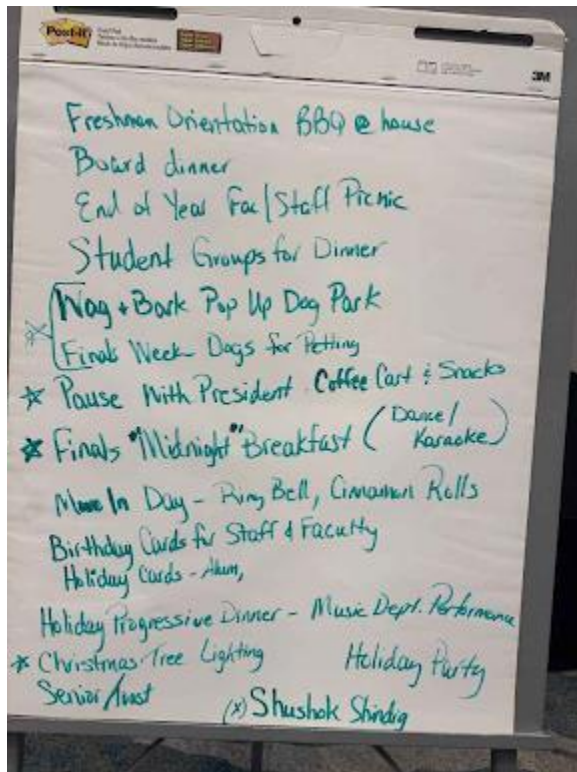 Post-it
3M
Freshman Orientation BBQ @ house
Board dinner
End of Year Fac/Staff Picnic
Student Groups for Dinner
Wag + Bark Pop Up Dog Park
Finals Week Dogs for Petting
☆ Pause With President Coffee Cart & Snacks
☆ Finals "Midnight" Breakfast (Dance/
Karaoke)
Move In Day - Ring Bell, Cinnamon Rolls
Birthday Cards for Staff & Faculty
Holiday Cards - Alum,
Holiday Progressive Dinner - Music Dept. Performance
☆ Christmas Tree Lighting Holiday Party
Senior Toast
(x) Shushok Shindig